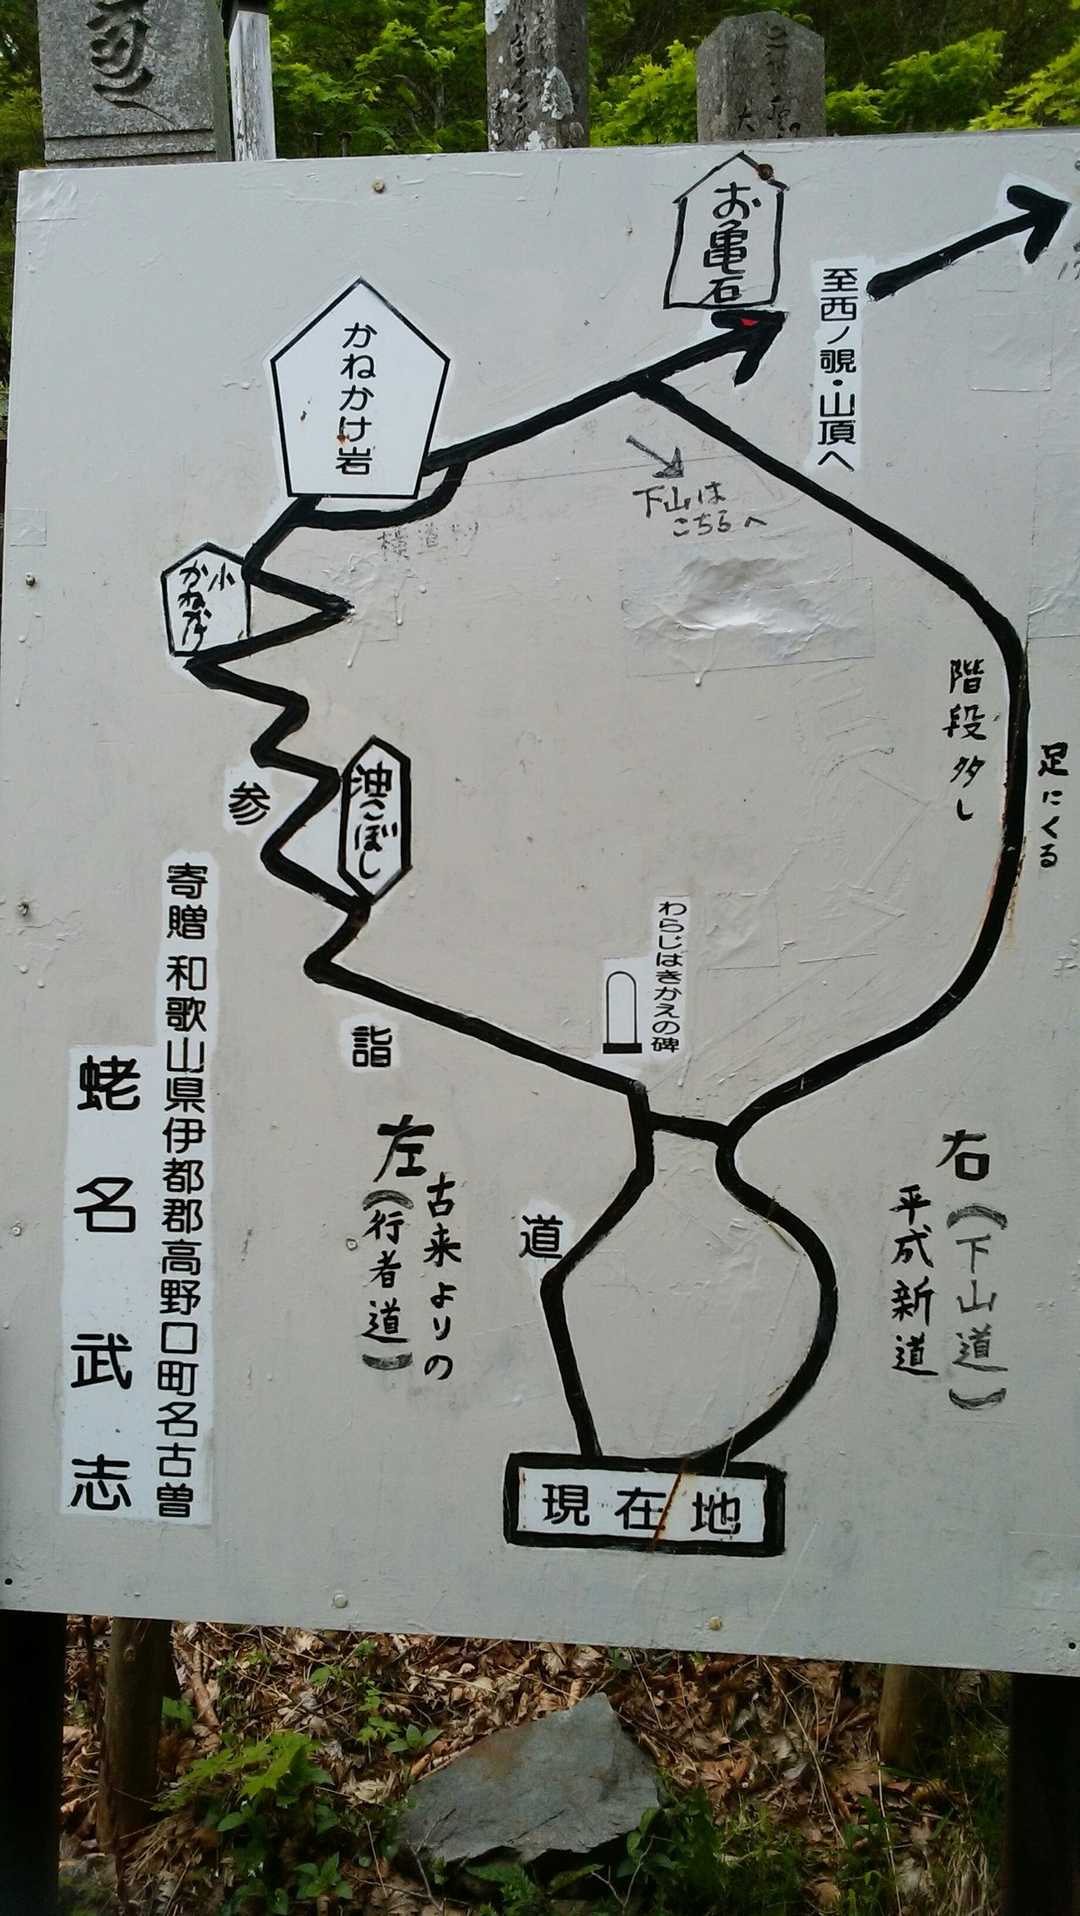 お亀石
至西ノ覗・山頂へ
かねかけ岩
下山は
こちらへ
横道
小
かねかけ
油こぼし
階段多し
足にくる
わらじはきかえの碑
参
詣
道
左
(行者道)
古来よりの
右
(下山道)
平成新道
現在地
寄贈 和歌山県伊都郡高野口町名古曽
蛯名武志